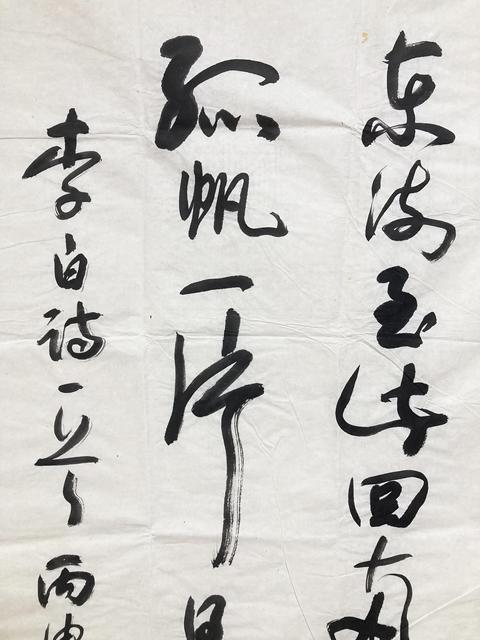 东流至此回
孤帆一片日
李白诗一首丙申